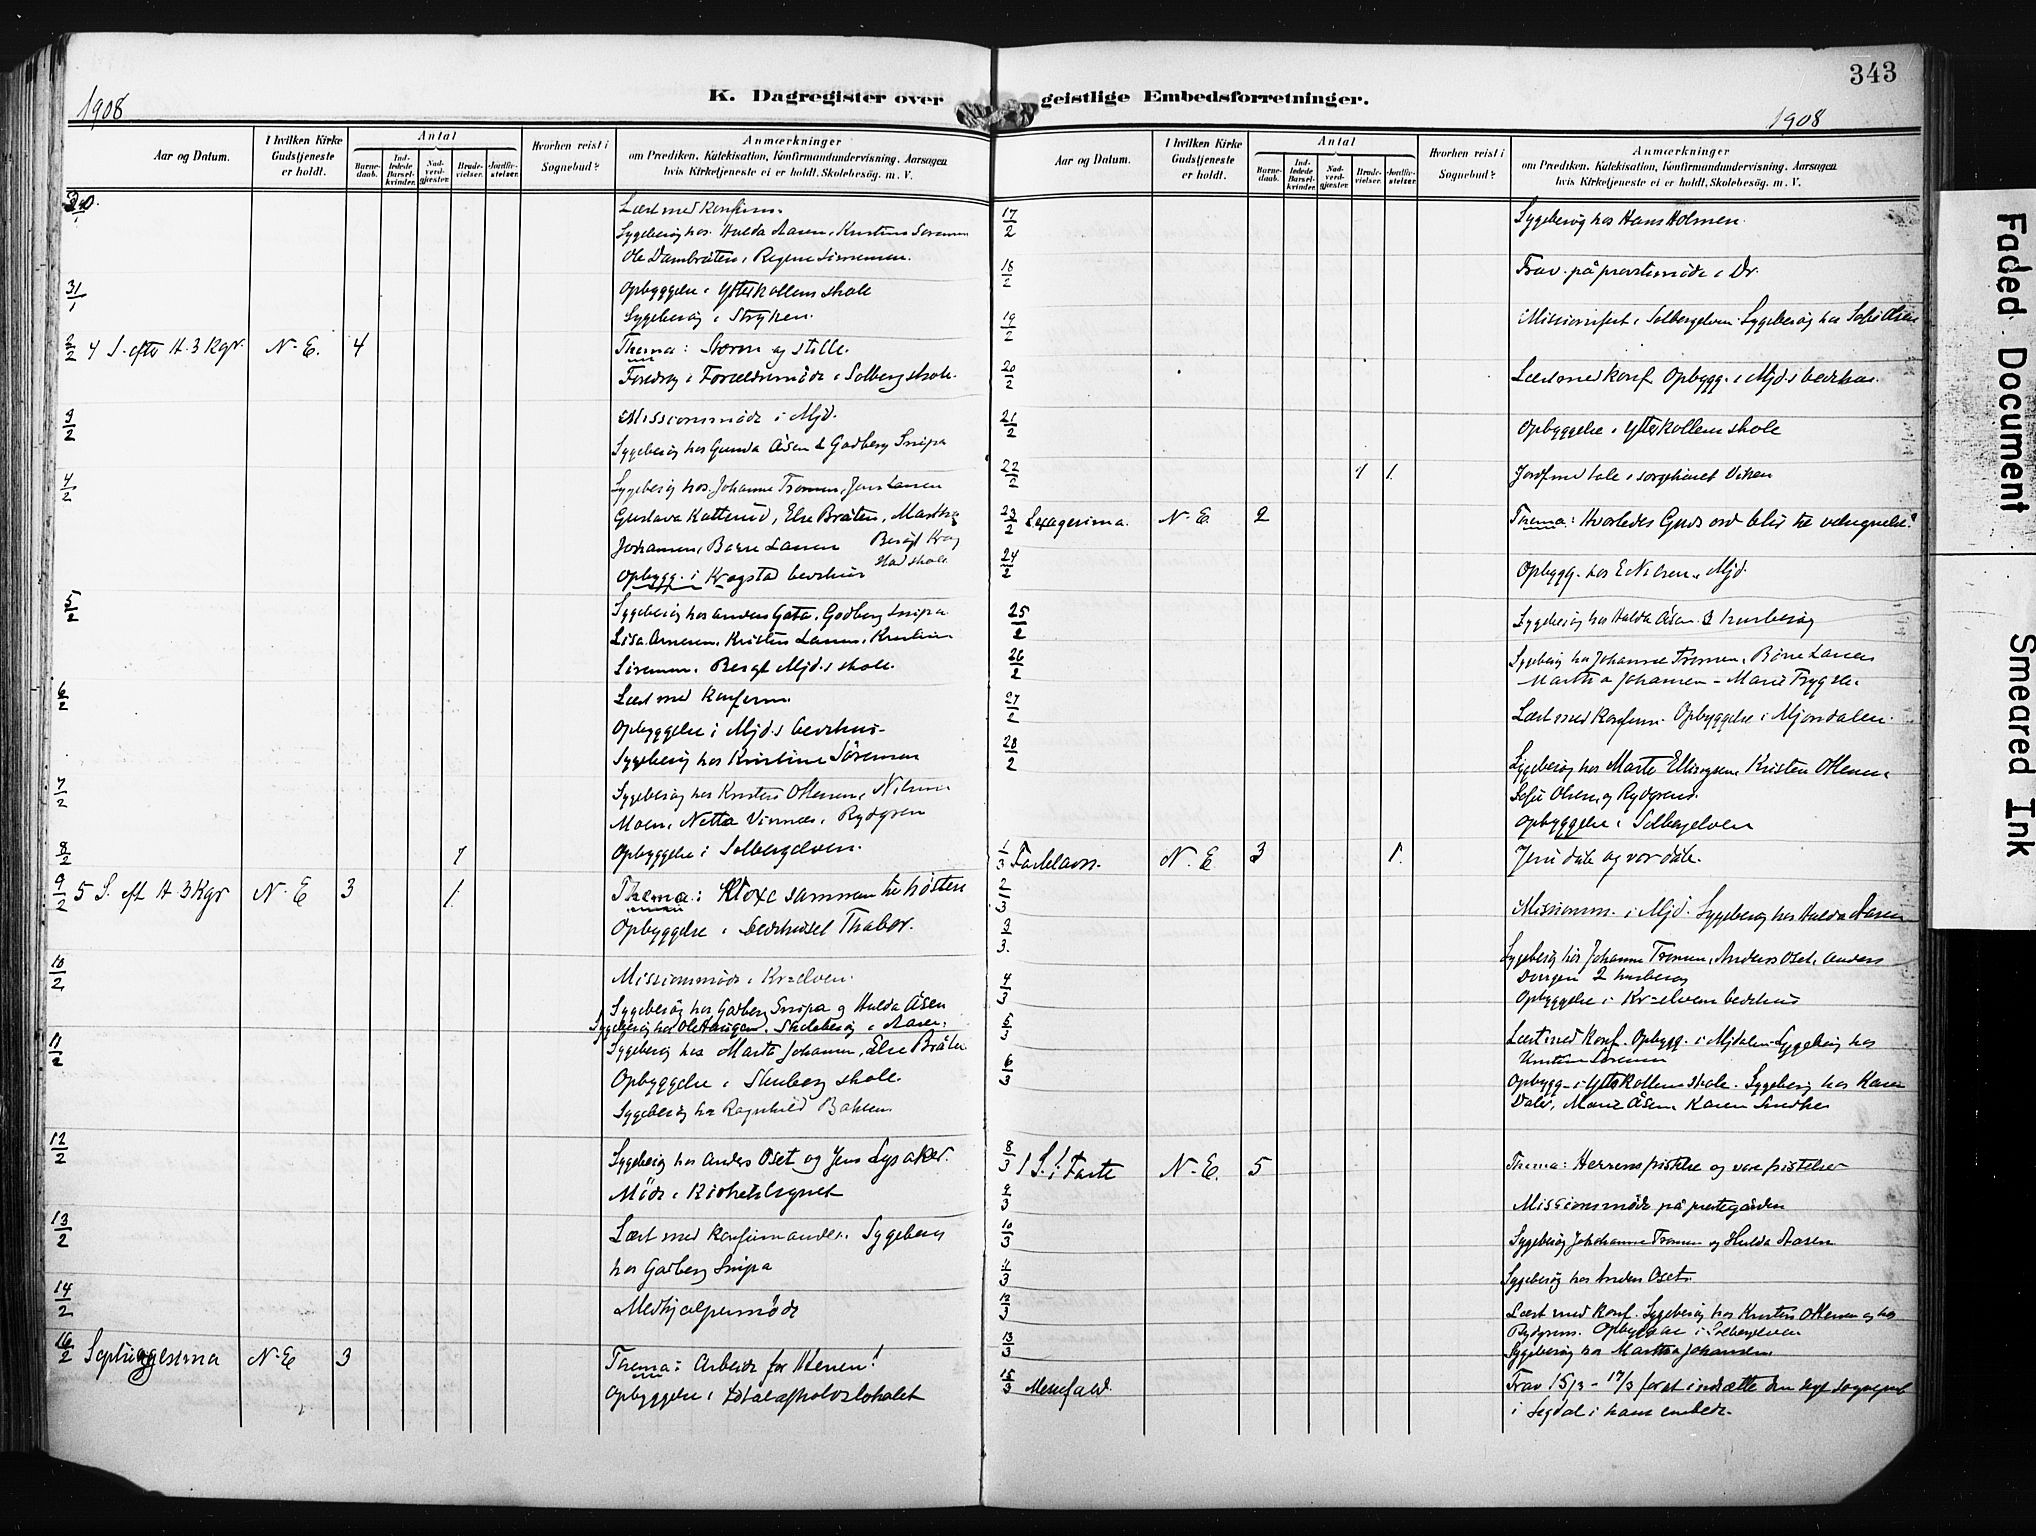 343
1908
K. Dagregister over
geistlige Embedsforretninger.
1908
Aar og Datum.
I hvilken Kirke Gudstjeneste er holdt.
Antal
Barne-daab.
Ind-ledede Barsel-kvinder.
Nad-verd-gjester.
Brude-vielser.
Jordfæ-stelser.
Hvorhen reist i Sognebud?
Anmærkninger
om Prædiken, Katekisation, Konfirmandundervisning, Aarsagen
hvis Kirketjeneste ei er holdt, Skolebesøg, m. V.
30/1
Læst med konfirm.
Sygebesøg hos Hulda Aasen, Kristine Sørensen
Ole Dambråten,
31/1
Opbyggelse i Ytterkollens skole
Sygebesøg i Stryken.
2/2 4 S. efter H. 3 Kgr. N. E. 4
Thema: Storm og stille.
Foredrag i Forældremøde i Solberg skole.
3/2
Missionsmøde i Mjd.
Sygebesøg hos Gunda Åsen & Godberg Snipa
4/2
Sygebesøg hos Johanne Tronsen, Jens Larsen
Gustava Katterud, Else Bråten, Martha
Johansen, Børre Larsen Besøgt Krog
stad skole
Opbygg. i Krogstad bedehus
5/2
Sygebesøg hos Anders Gata, Godberg Snipa
Lisa Arnesen, Kristen Larsen, Kristine
Sørensen. Besøgt Mjd.s skole.
6/2
Læst med konfirm.
Opbyggelse i Mjd.s bedehus
Sygebesøg hos Kristine Sörensen
7/2
Sygebesøg hos Kristen Ottesen, Nilsine
Moen, Netta Vinnæs, Rydgren
8/2 1
Opbyggelse i Solbergelven.
9/2 5 S. eft H 3 Kgr N. E 3 1.
Thema: Vokse sammen til høsten
Opbyggelse i bedehuset Thabor.
10/2
Missionsmøde i Kr=elven.
Sygebesøg hos Godberg Snipa og Hulda Åsen
Sygebesøg hos Ole Haugen. Skolebesøg i Aasen.
11/2
Sygebesøg hos Marta Johansen, Else Bråten
Opbyggelse i Stenberg skole.
Sygebesøg hos Ragnhild Bakken
12/2
Sygebesøg hos Anders Oset og Jens Lysaker.
Møde i Kirketilsynet
13/2
Læst med konfirmander. Sygebesøg
hos Godberg Snipa
14/2
Medhjælpermøde
16/2 Septuagesima N. E 3
Thema: Arbeide for Herren!
Opbyggelse i totalafholdslokalet
Aar og Datum.
I hvilken Kirke Gudstjeneste er holdt.
Antal
Barne-daab.
Ind-ledede Barsel-kvinder.
Nad-verd-gjester.
Brude-vielser.
Jordfæ-stelser.
Hvorhen reist i Sognebud?
Anmærkninger
om Prædiken, Katekisation, Konfirmandundervisning, Aarsagen
hvis Kirketjeneste ei er holdt, Skolebesøg, m. V.
17/2
Sygebesøg hos Hans Holmen.
18/2
Frav. på provstemøde i Dr.
19/2
Missionsfest i Solbergelven. Sygebesøg hos Sofie Olsen
20/2
Læst med konf. Opbygg. i Mjd.s bedehus.
21/2
Opbyggelse i Ytterkollens skole
22/2 1 1.
tale i sørgehuset Viken
23/2 Sexagesima. N. E. 2
Thema: Hvorledes Guds ord blir til velsignelse?
24/2
Opbygg. hos E Nilsen, Mjd.
25/2
Sygebesøg hos Hulda Åsen. 2 husbesøg
26/2
Sygebesøg hos Johanne Tronsen, Børre Larsen
Martha Johansen - Marie Frygsle.
27/2
Læst med konfirm. Opbyggelse i Mjøndalen.
28/2
Sygebesøg hos Marte Ellingsen, Kristen Ottesen,
Sofie Olsen, og Rydgrens.
Opbyggelse i Solbergelven
1/3 Fastelavn. N. E 3 1.
Jesu dåb og vor dåb.
2/3
Missionsm. i Mjd. Sygebesøg hos Hulda Aasen
3/3.
Sygebesøg hos Johanne Tronsen, Anders Oset, Anders
2 husbesøg
4/3
Opbyggelse i Kr=elvens bedehus
5/3
Læst med konf. Opbygg. i Mjdalen. Sygebesøg hos
Kristine Sørensen
6/3
Opbygg. i Ytterkollens skole. Sygebesøg hos Karen
Daler, Marie Åsen, Karen
8/3 1 S. i Faste N. E. 5
Thema: Herrens fristelse og vore fristelser
9/3
Missionsmøde på prestegården
10/3
Sygebesøg Johanne Tronsen og Hulda Aasen
11/3
Sygebesøg hos Anders Oset.
12/3
Læst med konf. Sygebesøg hos Kristen Ottesen og hos
Rydgrens. Opbyggelse i Solbergelven
13/3
Sygebesøg hos Martha Johansen.
15/3 Messefald.
Frav 15/3 - 17/3 for at indsætte den sognepr
i Sigdal i hans embede.
Faded Document
Smeared Ink